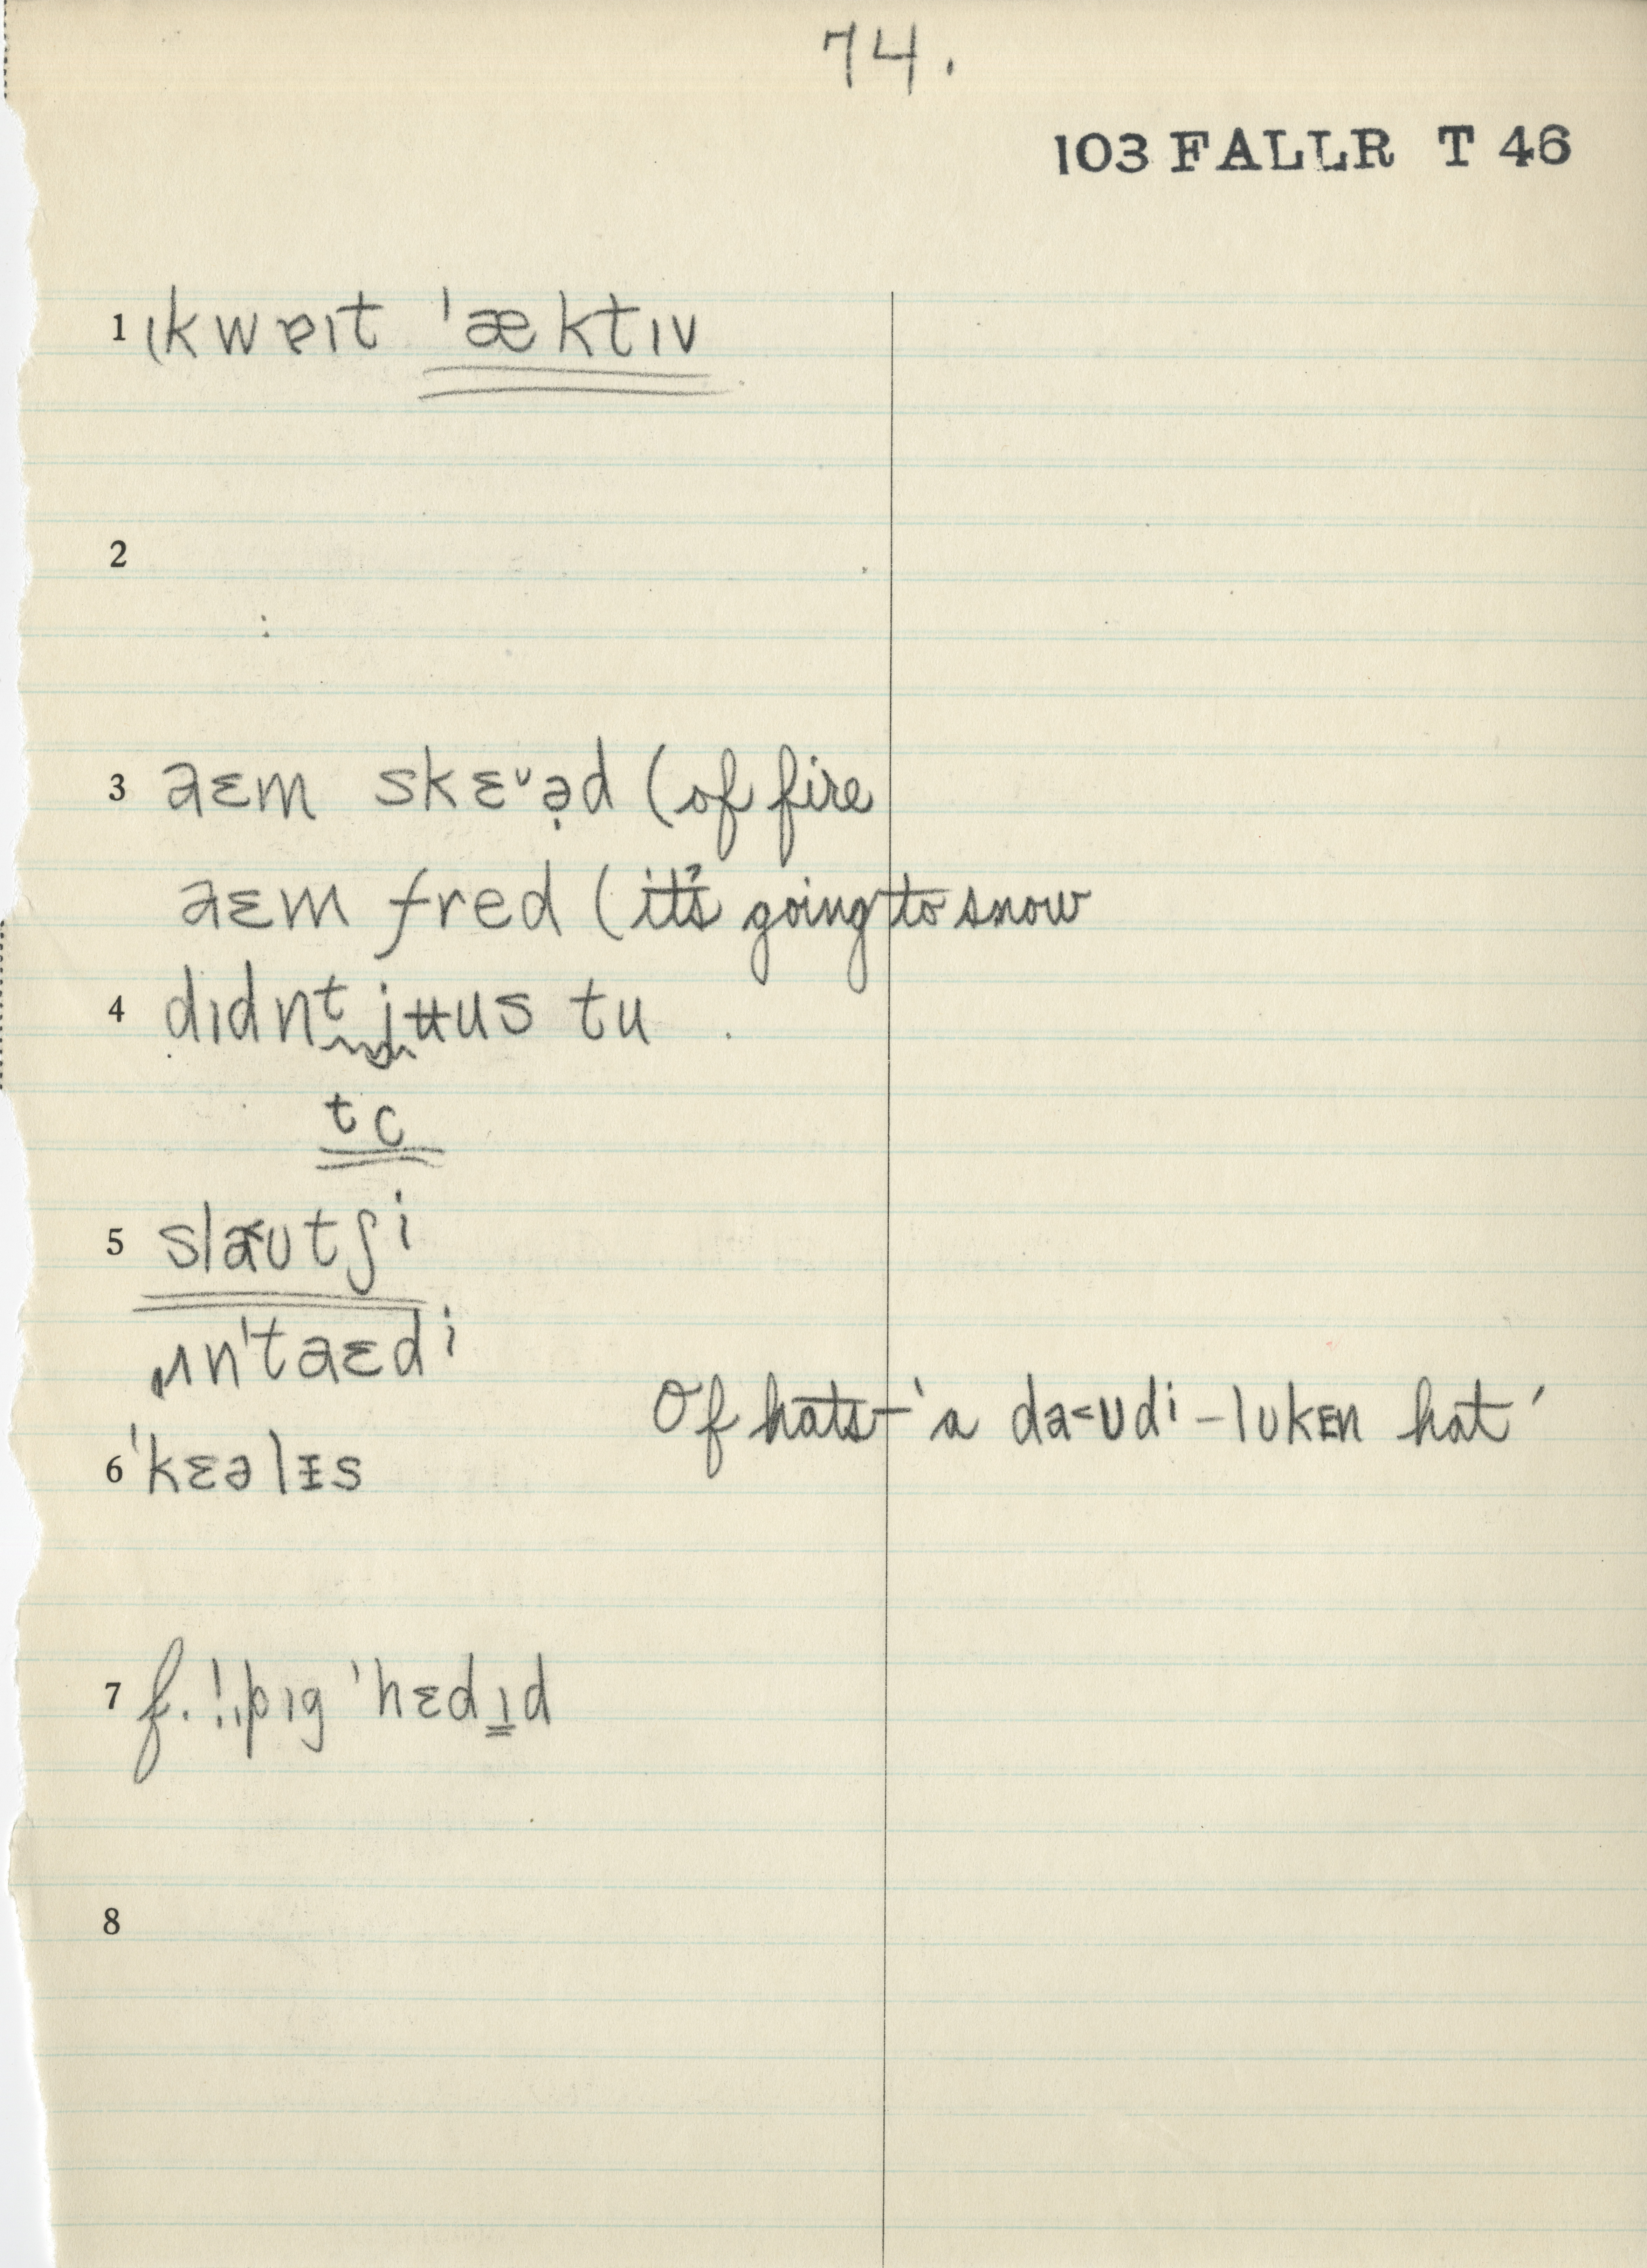 74.
103 FALLR T 46
1 ɩkwɐɪt ˈæktɪv
2
3 aɛm skɛᵛə̣d (of fire
aɛm fred (it's going to snow
4 dɪdnt jʉus tu
tc
5 sla<ʊtʃi
ʌnˈtaɛdi
Of hats—'a da<ʊdi-lʊkɛn hat'
6 ˈkɛəlɪs
7 pɪg ˈhɛdɪd
8